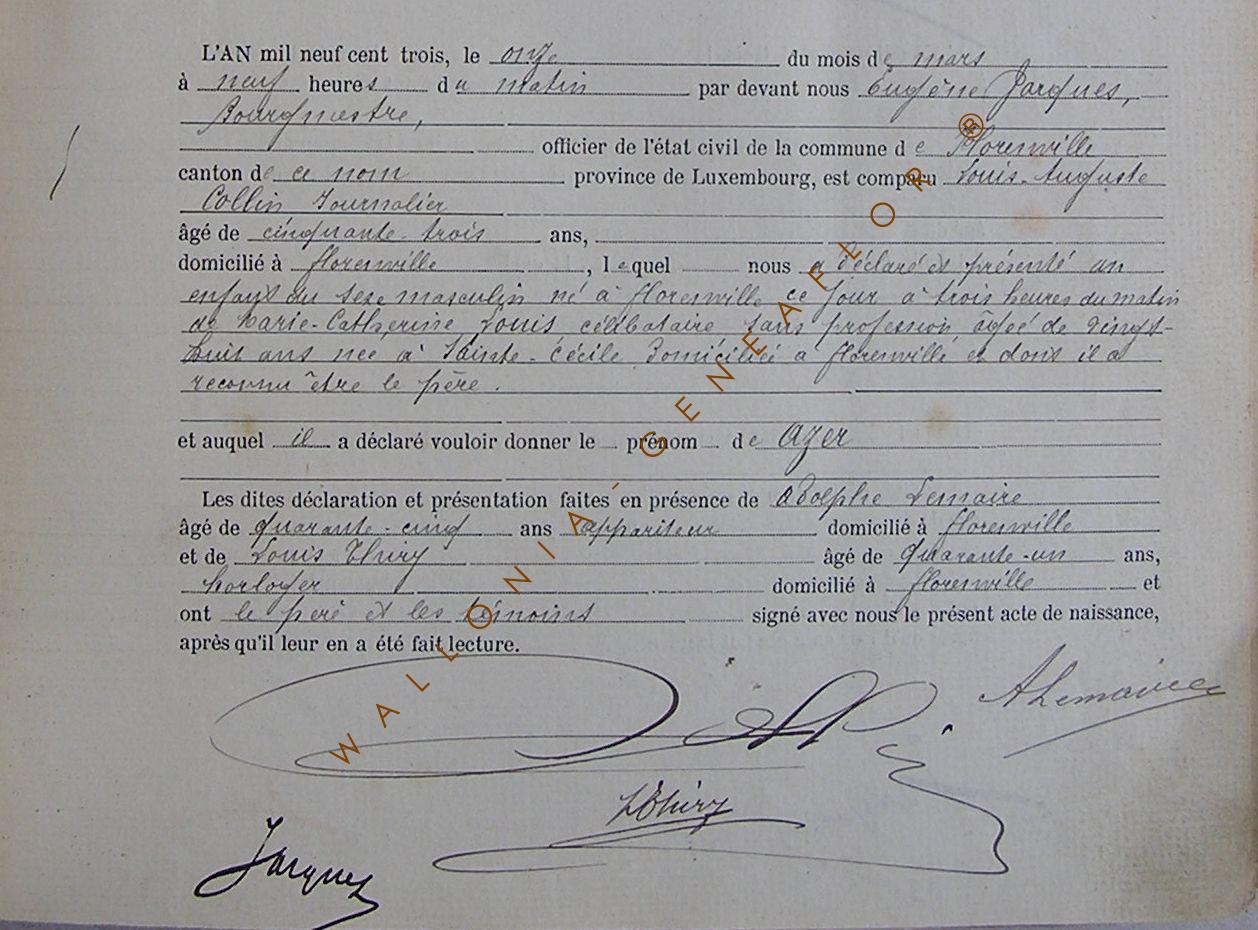 L'AN mil neuf cent trois, le onze du mois de mars
à neuf heures du matin par devant nous Eugène Jacques,
Bourgmestre,
officier de l'état civil de la commune de Florenville
canton de ce nom province de Luxembourg, est comparu Louis-Auguste
Collin Journalier
âgé de cinquante-trois ans,
domicilié à florenville, lequel nous a déclaré et présenté un
enfant du sexe masculin né à florenville ce jour à trois heures du matin
de Marie-Catherine Louis célibataire sans profession âgée de vingt-
huit ans née à Sainte-Cécile domiciliée à florenville et dont il a
reconnu être le père.
et auquel il a déclaré vouloir donner le prénom de Azer
Les dites déclaration et présentation faites en présence de Adolphe Lemaire
âgé de quarante-cinq ans appariteur domicilié à florenville
et de Louis Thiry âgé de quarante-un ans,
horloger domicilié à florenville et
ont le père et les témoins signé avec nous le présent acte de naissance,
après qu'il leur en a été fait lecture.
ALemaire
LThiry
Jacques
WALLONIA - GENEAFLOR ®